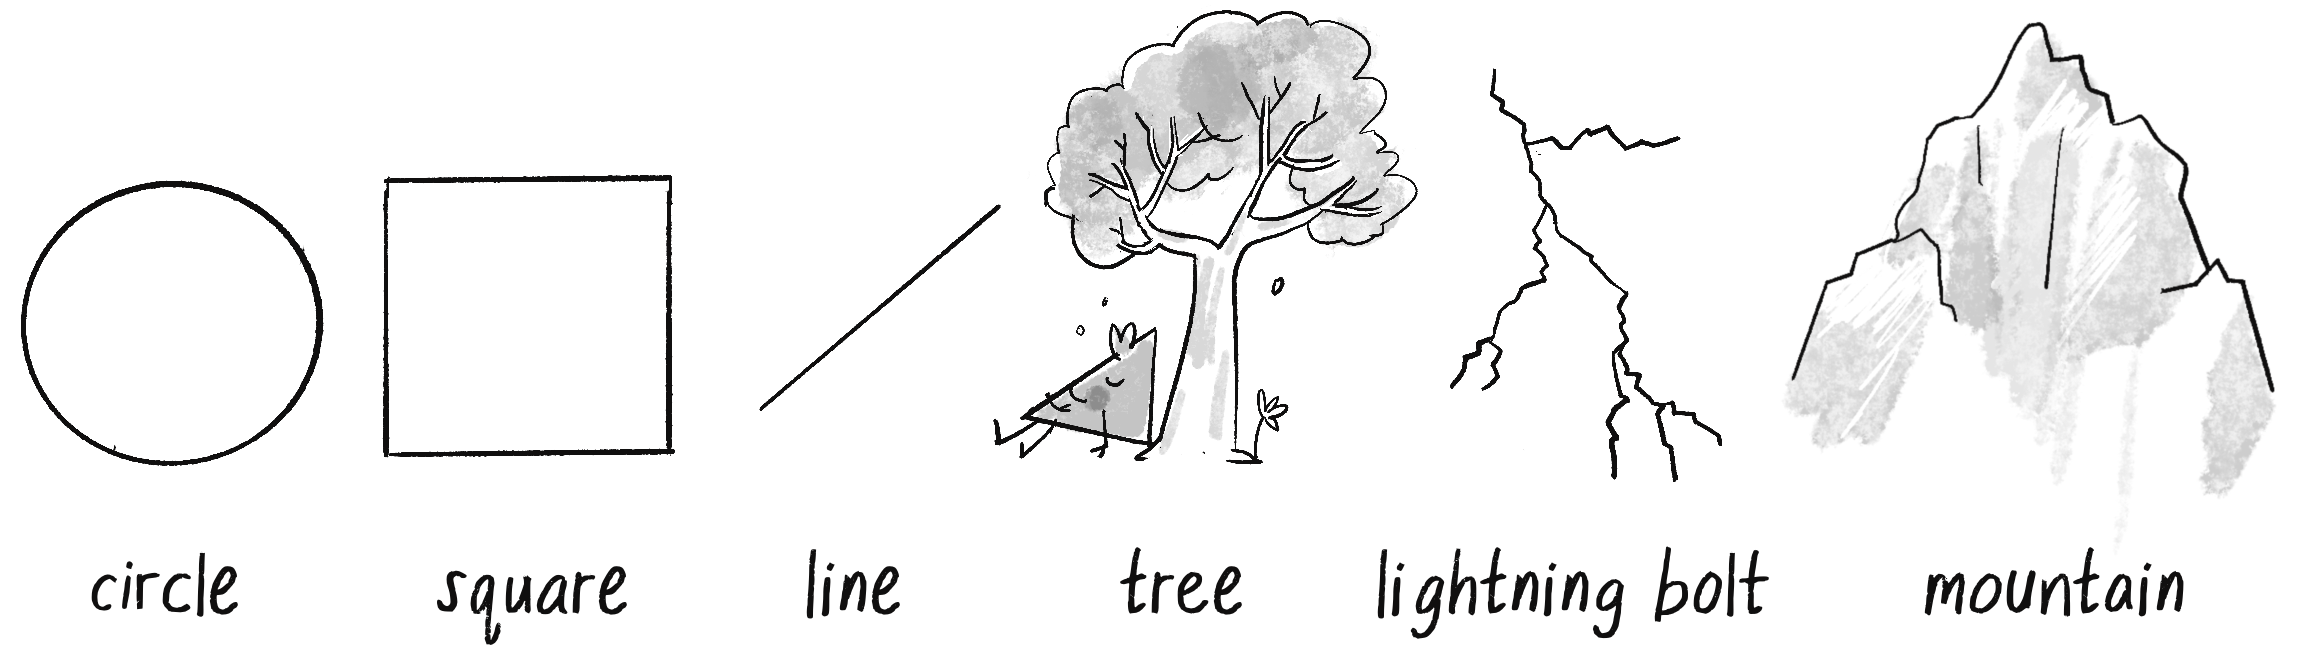 circle square line tree lightning bolt mountain